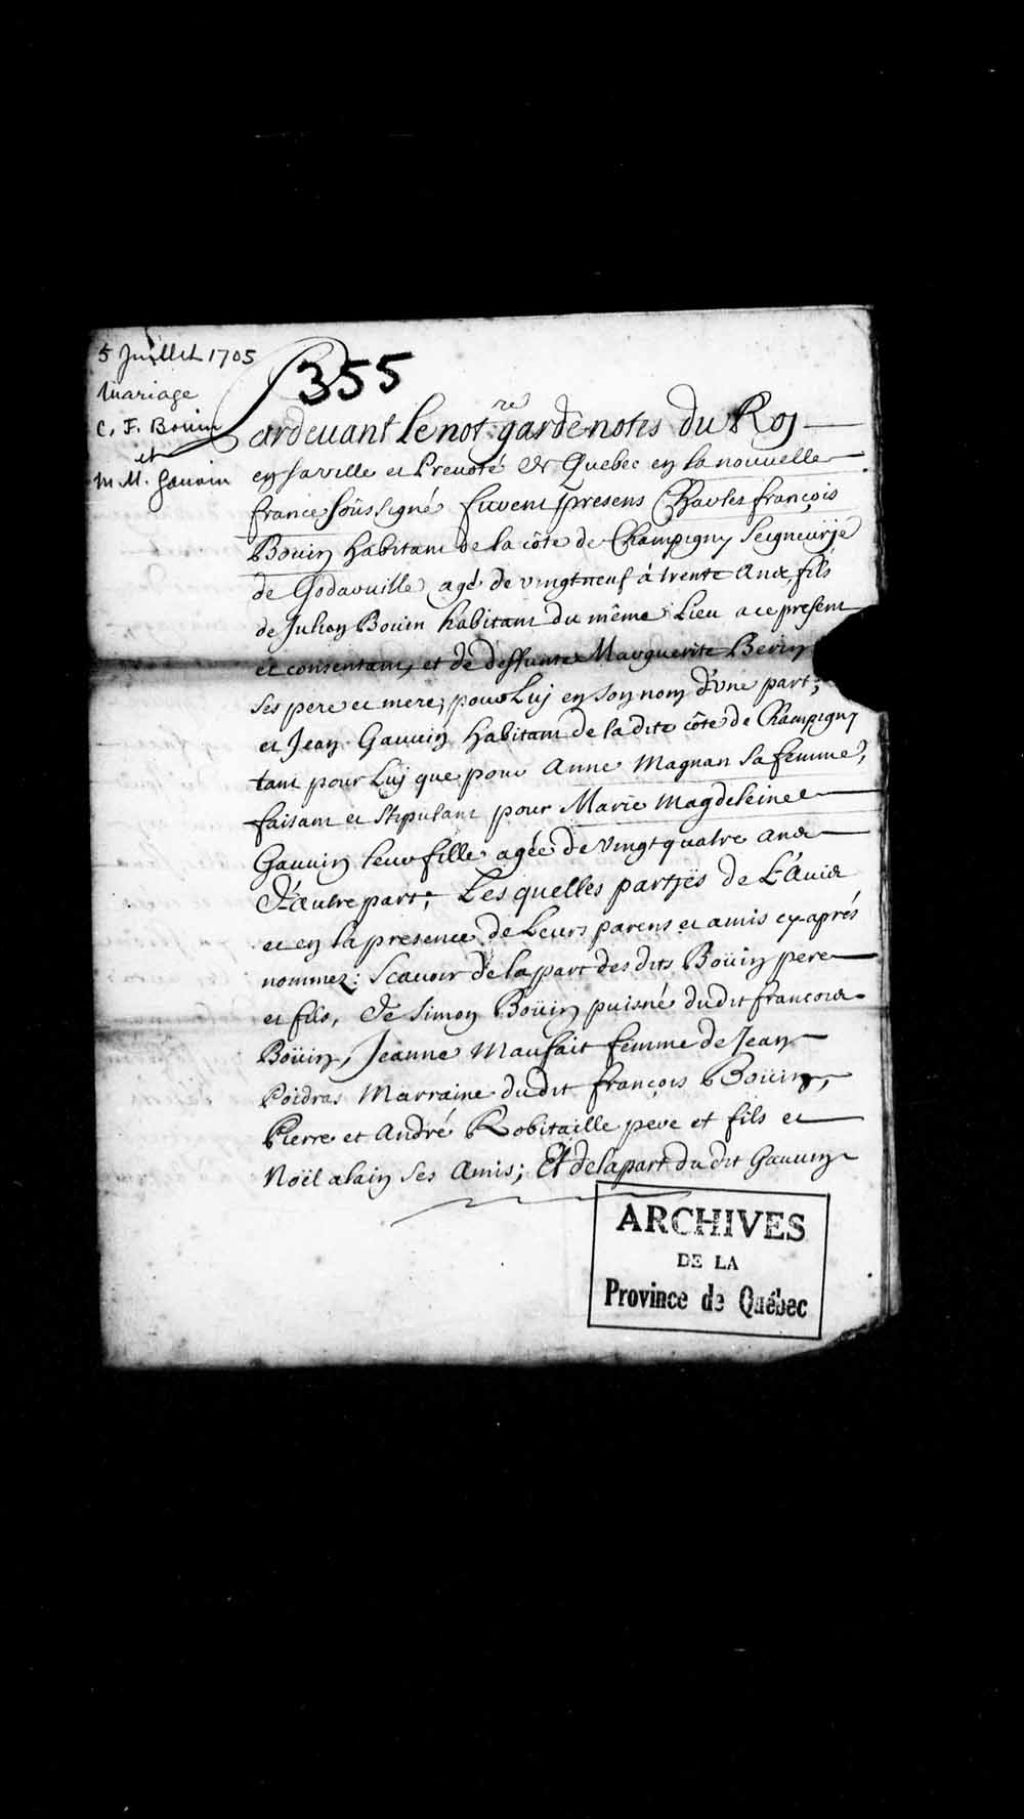 5 Juillet 1705
Mariage
C. F. Bouin
et
M. M. Gauvin
355
Pardevant le not.re garde notes du Roy
en sa ville et Prevoté de Quebec en la nouvelle
france soûssigné furent presens Charles françois
Bouin habitant de la côte de Champigny Seigneurye
de Godarville agé de vingt neuf à trente ans fils
de Julien Bouin habitant du même Lieu a ce present
et consentant, et de deffunte Marguerite Berin
ses pere et mere, pour Luy en son nom d'une part;
et Jean Gauvin habitant de la dite côte de Champigny
tant pour Luy que pour Anne Magnan sa femme,
faisant et stipulant pour Marie Magdeleine
Gauvin leur fille agée de vingt quatre ans
d'autre part; Les quelles partyes de L'avis
et en la presence de Leurs parens et amis cy aprés
nommez: Scavoir de la part des dits Boüin pere
et fils, de Simon Boüin puisné du dit francois
Boüin, Jeanne Maufait femme de Jean
Poidras Marraine du dit françois Boüin,
Pierre et André Robitaille pere et fils et
Noël alain ses Amis; Et de la part du dit Gauvin
ARCHIVES
DE LA
Province de Québec